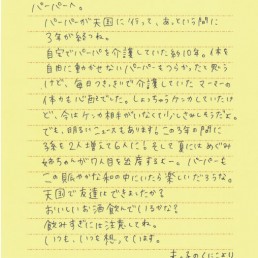 パーパーへ。
パーパーが天国に行って、あっという間に
3年が経つね。
自宅でパーパを介護していた約10年。体を
自由に動かせないパーパーもつらかったと思う
けど、毎日つきっきりで介護していた マーマーの
体りも心配でした。しょっちゅうケンカしていたけ
ど、今はケンカ相手がいなくて少しさみしそうだよ。
でも、明るいニュースもあります。この3年の間に
3孫を2人増えて6人に。そして夏にはめぐみ
姉ちゃんが7人目を出産するよー。パーパーも
この賑やかな和の中にいたら楽しいだろうな。
天国で友達はできましたか?
おいしいお酒飲んでいるかな?
飲みすぎには注意してね。
いつも、いつも想っています。
まっ子のくにこより